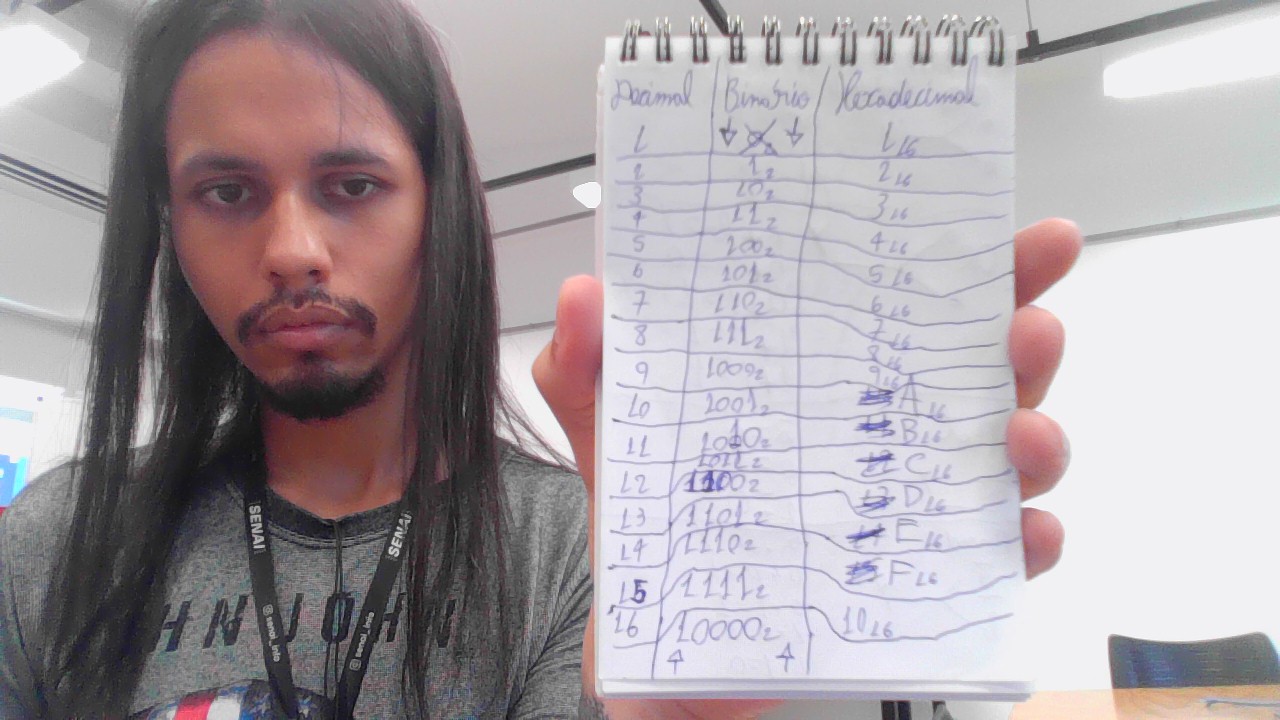 Decimal Binário Hexadecimal
1 1₁₆
2 1₂ 2₁₆
3 10₂ 3₁₆
4 11₂ 4₁₆
5 100₂ 5₁₆
6 101₂ 6₁₆
7 110₂ 7₁₆
8 111₂ 8₁₆
9 1000₂ 9₁₆
10 1001₂ A₁₆
11 1010₂ B₁₆
1011₂
12 1100₂ C₁₆
13 1101₂ D₁₆
14 1110₂ E₁₆
15 1111₂ F₁₆
16 10000₂ 10₁₆
SENAI
SENAI
senai_info
senai_info
HN JOHN